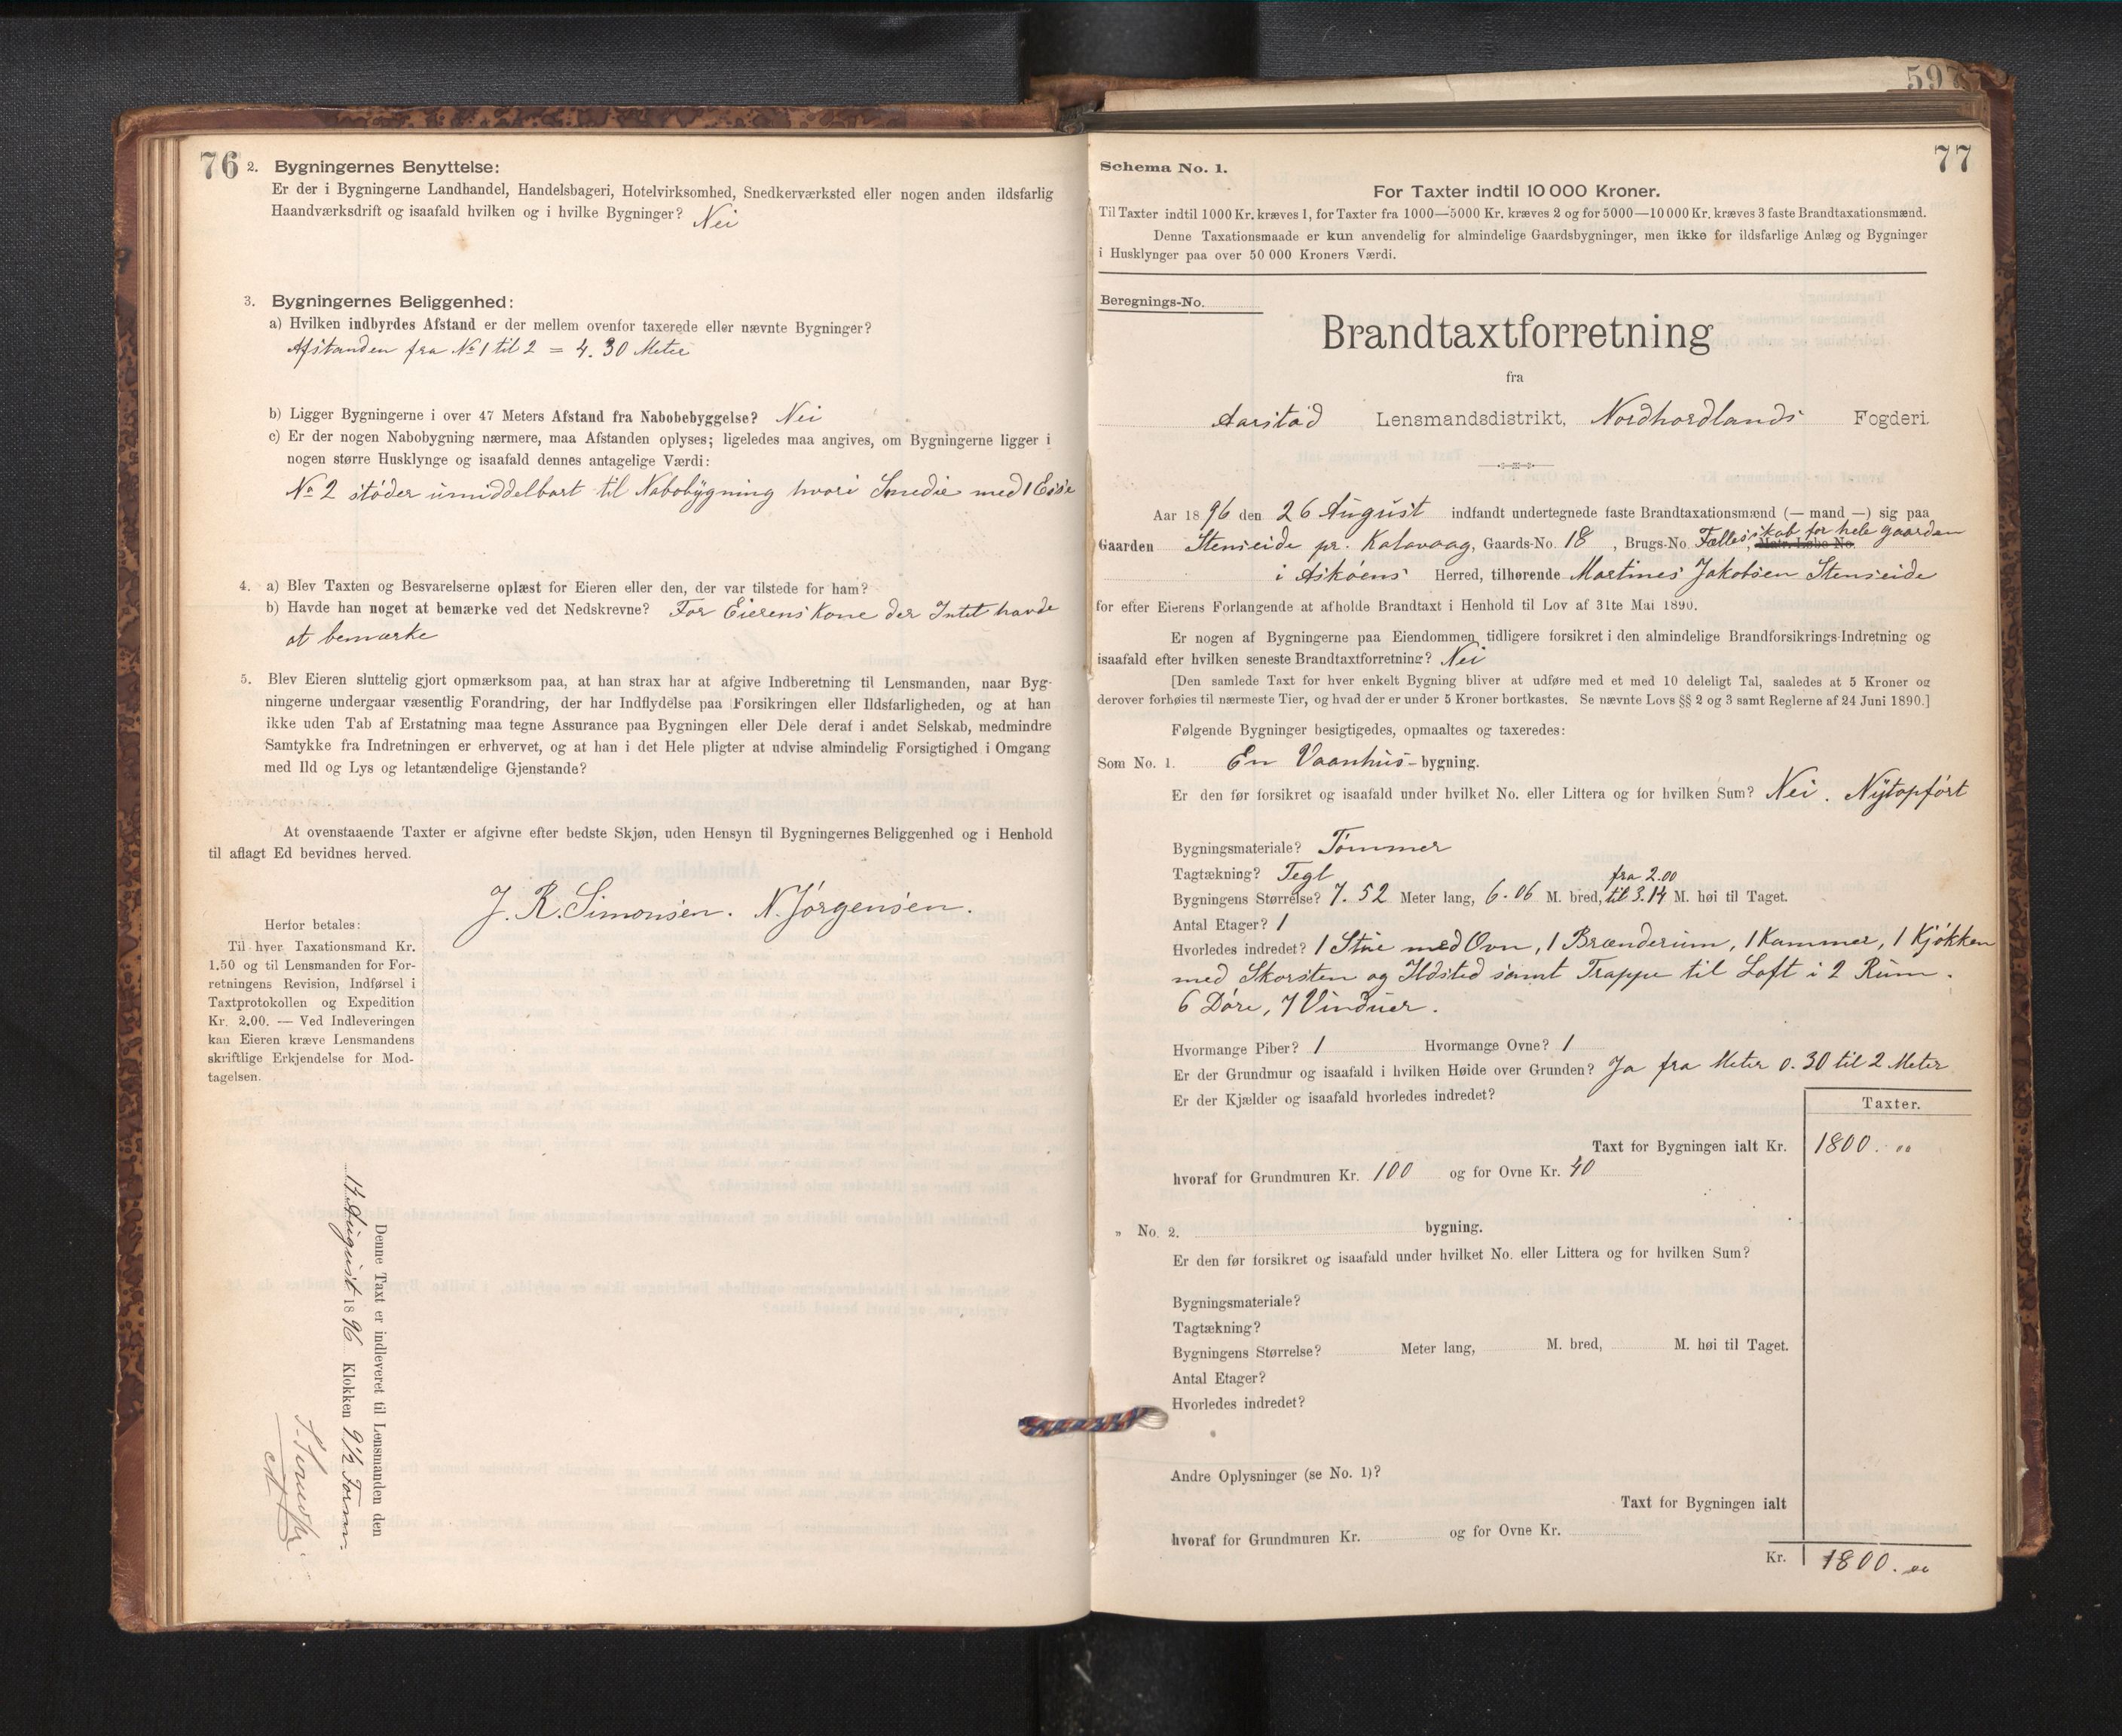 76
2. Bygningernes Benyttelse:
Er der i Bygningerne Landhandel, Handelsbageri, Hotelvirksomhed, Snedkerværksted eller nogen anden ildsfarlig
Haandværksdrift og isaafald hvilken og i hvilke Bygninger? Nei
3. Bygningernes Beliggenhed:
a) Hvilken indbyrdes Afstand er der mellem ovenfor taxerede eller nævnte Bygninger?
Afstanden fra No 1 til 2 = 4.30 Meter
b) Ligger Bygningerne i over 47 Meters Afstand fra Nabobebyggelse? Nei
c) Er der nogen Nabobygning nærmere, maa Afstanden oplyses; ligeledes maa angives, om Bygningerne ligger i
nogen større Husklynge og isaafald dennes antagelige Værdi:
No 2 støder umiddelbart til Nabobygning hvori Smedie med 1 Esse
4. a) Blev Taxten og Besvarelserne oplæst for Eieren eller den, der var tilstede for ham?
b) Havde han noget at bemærke ved det Nedskrevne? For Eierens Kone der Intet havde
at bemærke
5. Blev Eieren sluttelig gjort opmærksom paa, at han strax har at afgive Indberetning til Lensmanden, naar Byg-
ningerne undergaar væsentlig Forandring, der har Indflydelse paa Forsikringen eller Ildsfarligheden, og at han
ikke uden Tab af Erstatning maa tegne Assurance paa Bygningen eller Dele deraf i andet Selskab, medmindre
Samtykke fra Indretningen er erhvervet, og at han i det Hele pligter at udvise almindelig Forsigtighed i Omgang
med Ild og Lys og letantændelige Gjenstande?
At ovenstaaende Taxter er afgivne efter bedste Skjøn, uden Hensyn til Bygningernes Beliggenhed og i Henhold
til aflagt Ed bevidnes herved.
J. R. Simonsen. N. Jørgensen.
Herfor betales:
Til hver Taxationsmand Kr.
1.50 og til Lensmanden for For-
retningens Revision, Indførsel i
Taxtprotokollen og Expedition
Kr. 2.00. — Ved Indleveringen
kan Eieren kræve Lensmandens
skriftlige Erkjendelse for Mod-
tagelsen.
Denne Taxt er indleveret til Lensmanden den
14 August 1896 Klokken 9 1/2 Form.
597
77
Schema No. 1.
For Taxter indtil 10 000 Kroner.
Til Taxter indtil 1000 Kr. kræves 1, for Taxter fra 1000—5000 Kr. kræves 2 og for 5000—10 000 Kr. kræves 3 faste Brandtaxationsmænd.
Denne Taxationsmaade er kun anvendelig for almindelige Gaardsbygninger, men ikke for ildsfarlige Anlæg og Bygninger
i Husklynger paa over 50 000 Kroners Værdi.
Beregnings-No.
Brandtaxtforretning
fra
Aarstad Lensmandsdistrikt, Nordhordlands Fogderi.
Aar 1896 den 26 August indfandt undertegnede faste Brandtaxationsmænd (— mand —) sig paa
Gaarden Stenseide pr. Kalavaag, Gaards-No. 18, Brugs-No Fællesskab for hele gaarden, Matr. Løbe No.
i Askøens Herred, tilhørende Martines Jakobsen Stenseide
for efter Eierens Forlangende at afholde Brandtaxt i Henhold til Lov af 31te Mai 1890.
Er nogen af Bygningerne paa Eiendommen tidligere forsikret i den almindelige Brandforsikrings-Indretning og
isaafald efter hvilken seneste Brandtaxtforretning? Nei
[Den samlede Taxt for hver enkelt Bygning bliver at udføre med et med 10 deleligt Tal, saaledes at 5 Kroner og
derover forhøies til nærmeste Tier, og hvad der er under 5 Kroner bortkastes. Se nævnte Lovs §§ 2 og 3 samt Reglerne af 24 Juni 1890.]
Følgende Bygninger besigtigedes, opmaaltes og taxeredes:
Som No. 1. En Vaanhus-bygning.
Er den før forsikret og isaafald under hvilket No. eller Littera og for hvilken Sum? Nei. Nytopført
Bygningsmateriale? Tømmer
Tagtækning? Tegl
Bygningens Størrelse? 7.52 Meter lang, 6.06 M. bred, fra 2.00 til 3.14 M. høi til Taget.
Antal Etager? 1
Hvorledes indredet? 1 Stue med Ovn, 1 Brænderum, 1 Kammer, 1 Kjøkken
med Skorsten og Ildsted samt Trappe til Loft i 2 Rum.
6 Døre, 7 Vinduer.
Hvormange Piber? 1 Hvormange Ovne? 1
Er der Grundmur og isaafald i hvilken Høide over Grunden? Ja fra Meter 0.30 til 2 Meter
Er der Kjælder og isaafald hvorledes indredet?
Taxter.
Taxt for Bygningen ialt Kr. 1800. "
hvoraf for Grundmuren Kr. 100 og for Ovne Kr. 40
" No. 2. bygning.
Er den før forsikret og isaafald under hvilket No. eller Littera og for hvilken Sum?
Bygningsmateriale?
Tagtækning?
Bygningens Størrelse? Meter lang, M. bred, M. høi til Taget.
Antal Etager?
Hvorledes indredet?
Andre Oplysninger (se No. 1)?
Taxt for Bygningen ialt
hvoraf for Grundmuren Kr. og for Ovne Kr.
Kr. 1800. "